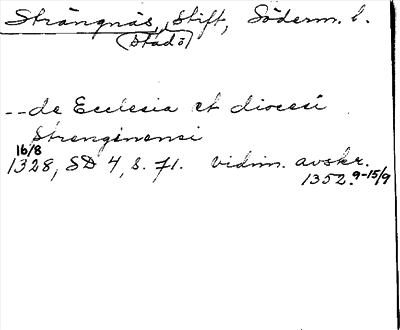 Strängnäs, Stift, Söderm. l.
(Stad)
-- de Ecclesia et diocesi
Strenginensi
16/8
1328, SD 4, s. 71. vidim. avskr.
1352. 9-15/9